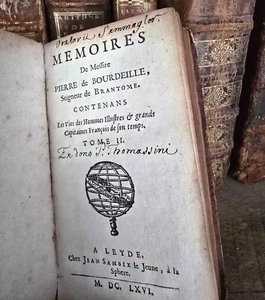 Oratorii Sammaglor.
MEMOIRES
De Messire
PIERRE de BOURDEILLE,
Seigneur de BRANTOME.
CONTENANS
Les Vies des Hommes Illustres & grands
Capitaines François de son temps.
TOME II.
Ex dono P. Thomassini
A LEYDE,
Chez JEAN SAMBIX le Jeune, à la
Sphere.
M. DC. LXVI.